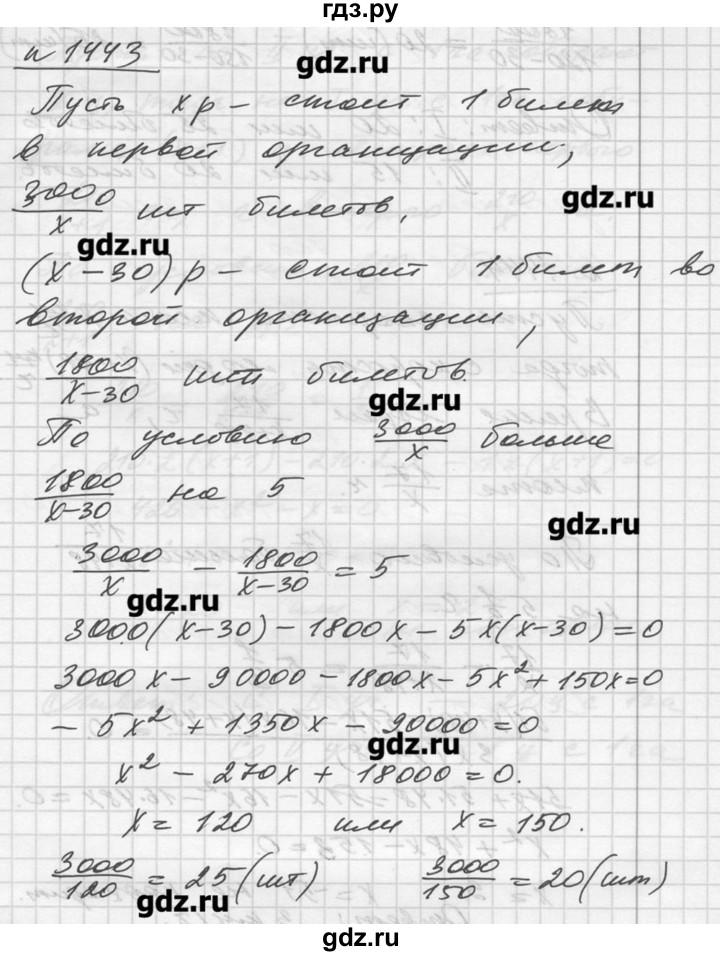 гдз.ру
n 1443
gdz.ru
Пусть x р – стоит 1 билет
в первой организации,
3000/x шт билетов,
gdz.ru
gdz.ru
(x – 30) р – стоит 1 билет во
второй организации,
1800/(x–30) шт билетов.
gdz.ru
По условию 3000/x больше
1800/(x–30) на 5
gdz.ru
3000/x – 1800/(x–30) = 5
gdz.ru
3000(x–30) – 1800x – 5x(x–30) = 0
3000x – 90000 – 1800x – 5x² + 150x = 0
– 5x² + 1350x – 90000 = 0
gdz.ru
x² – 270x + 18000 = 0.
x = 120 или x = 150.
3000/120 = 25 (шт) 3000/150 = 20 (шт)
gdz.ru
gdz.ru